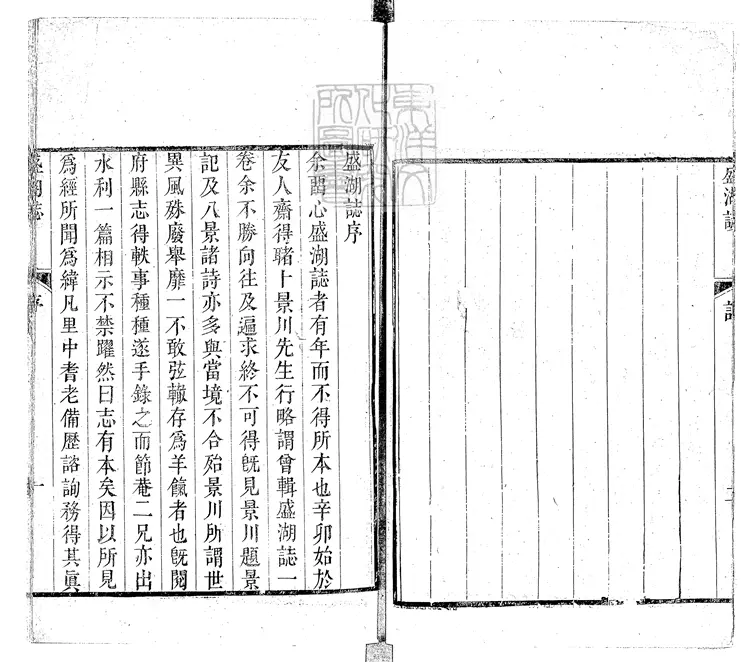 東洋文
化研究
所圖書
盛湖誌
盛湖誌序
余畱心盛湖誌者有年而不得所本也辛卯始於
友人齋得睹卜景川先生行略謂曾輯盛湖誌一
卷余不勝向往及遍求終不可得旣見景川題景
記及八景諸詩亦多與當境不合殆景川所謂世
異風殊廢舉靡一不敢弦轍存爲羊餼者也旣閱
府縣志得軼事種種遂手錄之而節菴二兄亦出
水利一篇相示不禁躍然曰志有本矣因以所見
爲經所聞爲緯凡里中耆老備歷諮詢務得其眞
盛湖誌 序 一